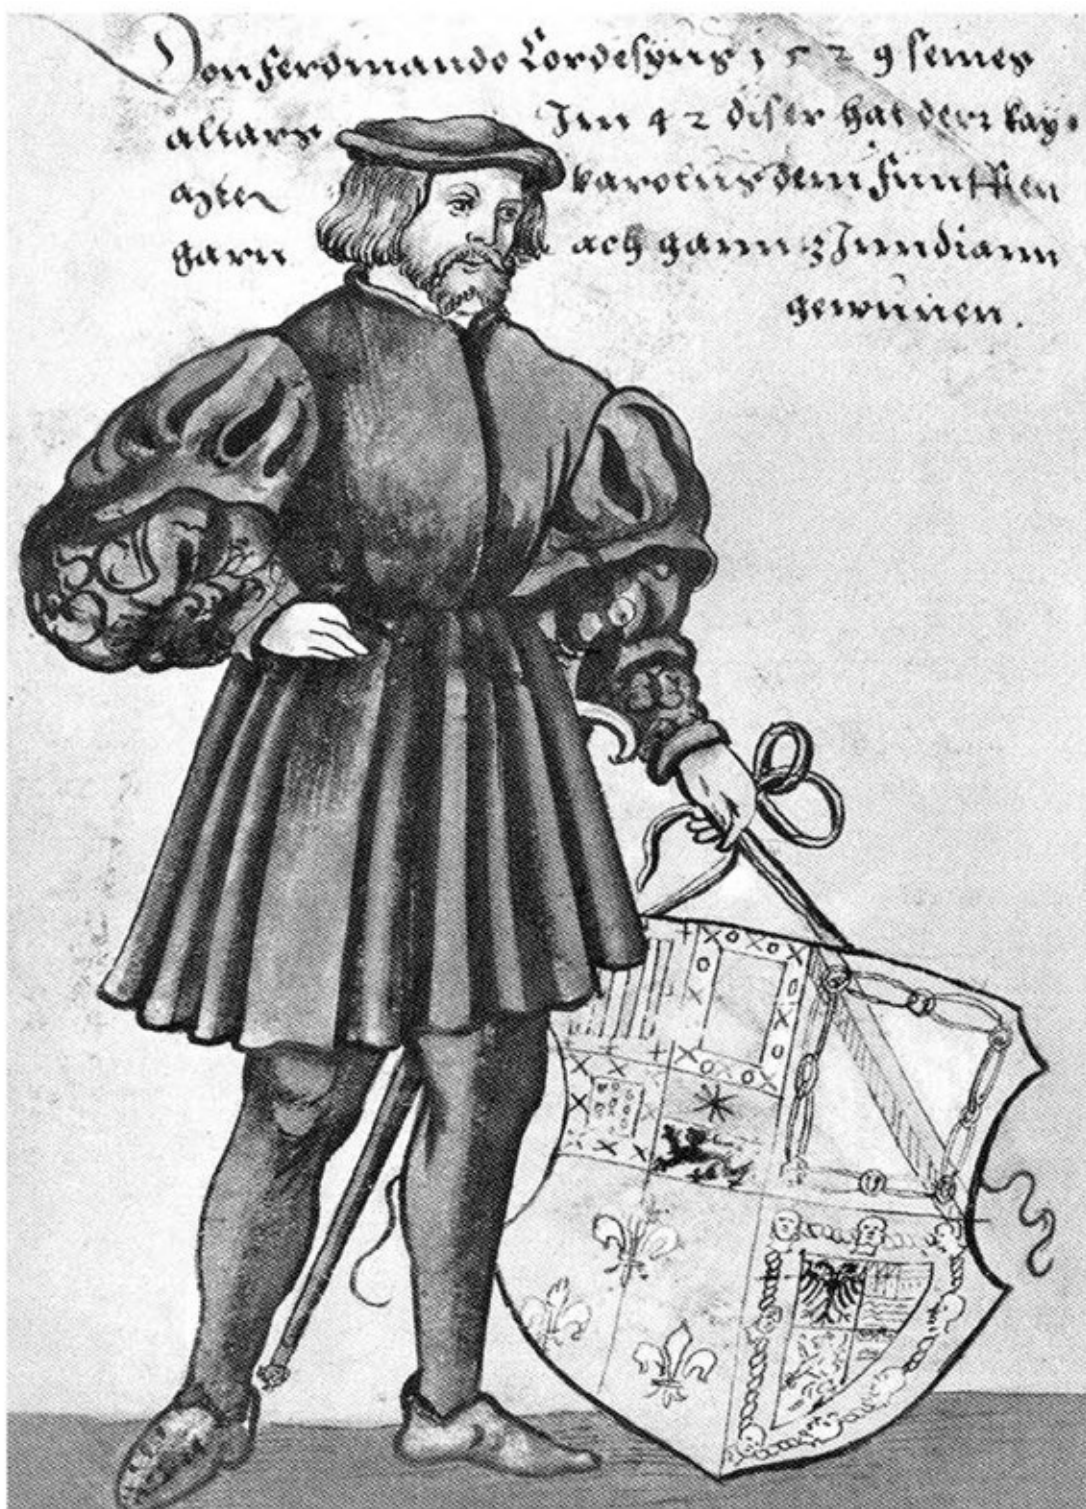 Don Ferdmando Cordesyus 1529 seines
altars Im 42 diser hat derr kay
karolus dem funfften
ach gannz Inndiann
gewunen.